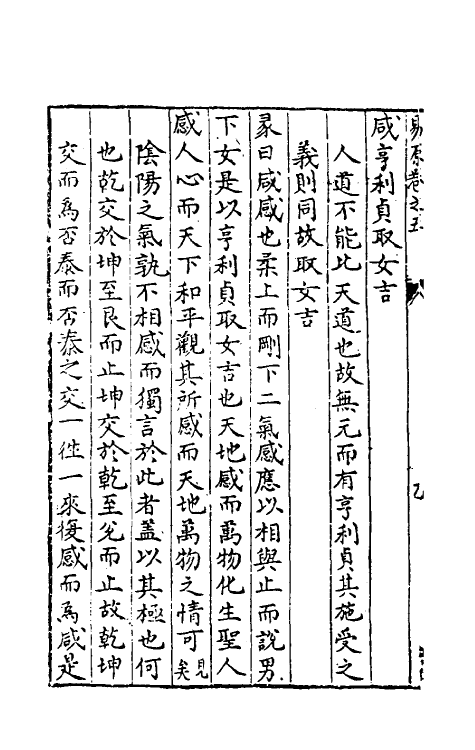 易原卷之五
咸亨利貞取女吉
人道不能比天道也故無元而有亨利貞其施受之
義則同故取女吉
彖曰咸感也柔上而剛下二氣感應以相與止而說男
下女是以亨利貞取女吉也天地感而萬物化生聖人
感人心而天下和平觀其所感而天地萬物之情可見矣
陰陽之氣孰不相感而獨言於此者蓋以其極也何
也乾交於坤至艮而止坤交於乾至兌而止故乾坤
交而爲否泰而否泰之交一徃一來復感而爲咸是